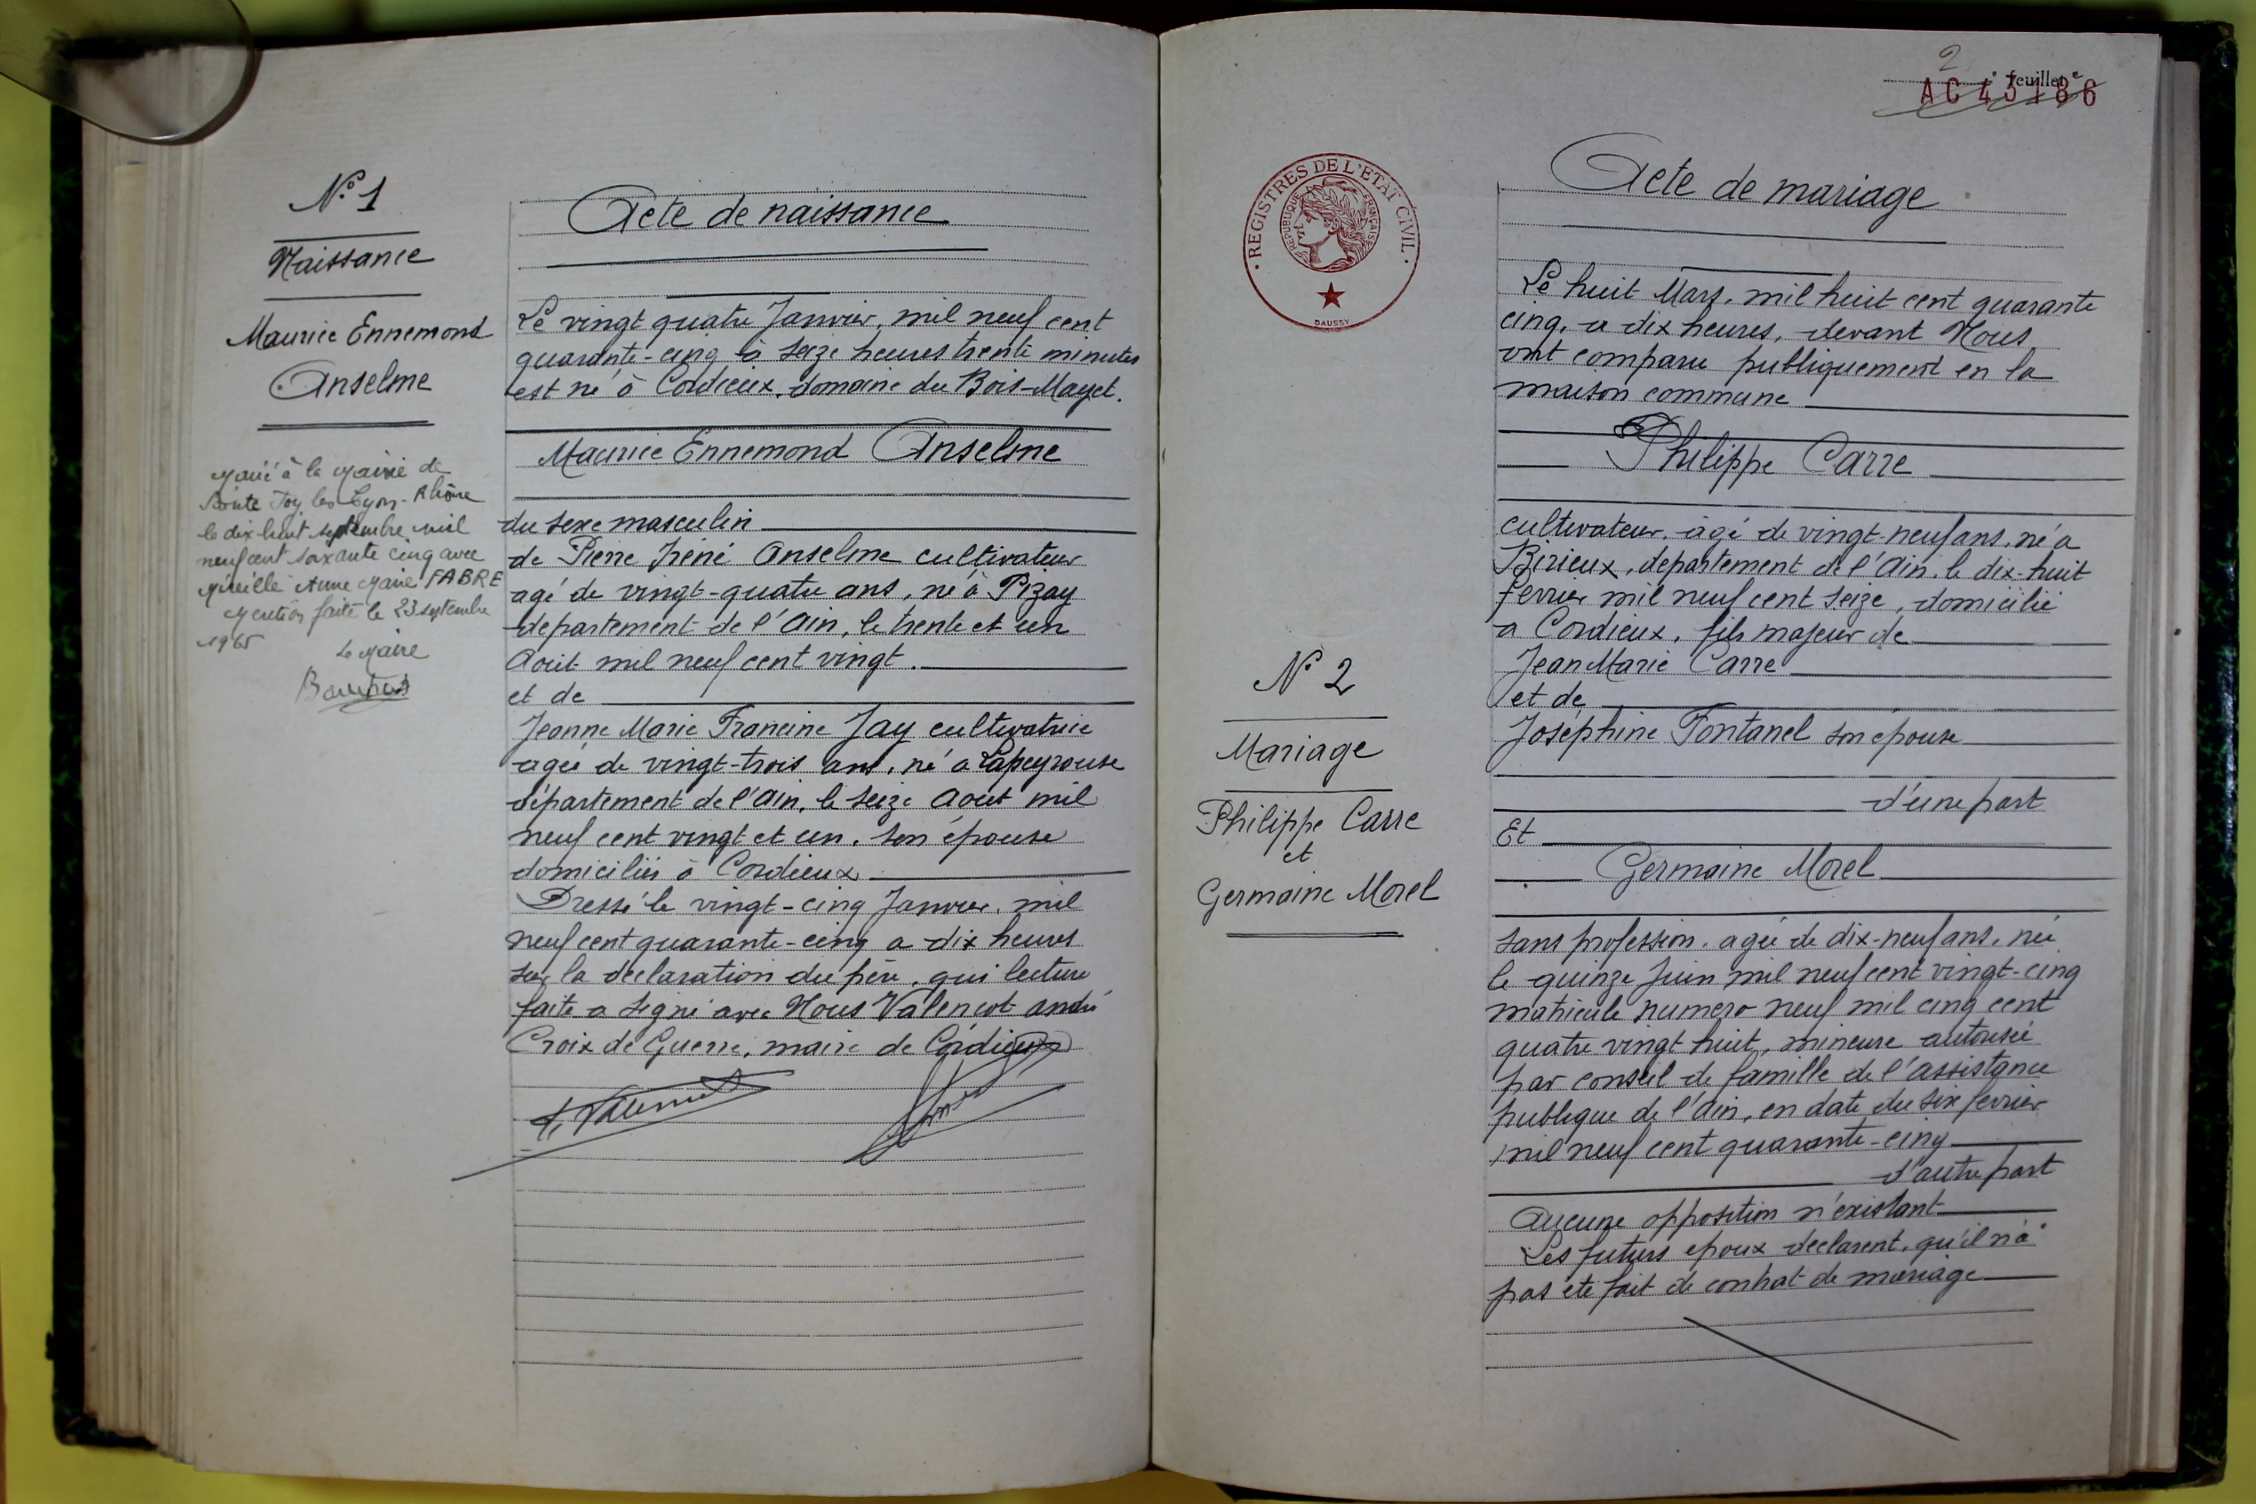 N° 1
Naissance
Maurice Ennemond
Anselme
Marié à la Mairie de
Sainte Foy les Lyon - Rhône
le dix huit septembre mil
neuf cent soixante cinq avec
Mireille Anne Marie FABRE
Mention faite le 23 septembre
1965
Le Maire
Acte de naissance
Le vingt quatre Janvier, mil neuf cent
quarante-cinq à seize heures trente minutes
est né à Cordieux, domaine du Bois-Mayet.
Maurice Ennemond Anselme
du sexe masculin
de Pierre Iréné Anselme cultivateur
agé de vingt-quatre ans, né à Pizay
département de l'Ain, le trente et un
Aout mil neuf cent vingt.
et de
Jeanne Marie Francine Jay cultivatrice
agée de vingt-trois ans, né à Lapeyrouse
département de l'Ain, le seize Aout mil
neuf cent vingt et un. son épouse
domiciliés à Cordieux
Dressé le vingt-cinq Janvier, mil
neuf cent quarante-cinq a dix heures
sur la déclaration du père, qui lecture
faite a signé avec Nous Valençot andré
Croix de Guerre, maire de Cordieux
2
e feuillet e
AC 43186
REGISTRES DE L'ETAT CIVIL
REPUBLIQUE FRANÇAISE
DAUSSY
Acte de mariage
Le huit Mars, mil huit cent quarante
cinq, a dix heures, devant Nous
ont comparu publiquement en la
maison commune
Philippe Carre
cultivateur, âgé de vingt-neuf ans, né à
Birieux, département de l'Ain, le dix-huit
fevrier mil neuf cent seize, domicilié
a Cordieux, fils majeur de
Jean Marie Carre
et de
Joséphine Fontanel son épouse
d'une part
Et
Germaine Morel
sans profession. agée de dix-neuf ans, née
le quinze Juin mil neuf cent vingt-cinq
matricule numero neuf mil cinq cent
quatre vingt huit, mineure autorisée
par conseil de famille de l'assistance
publique de l'Ain, en date du six fevrier
mil neuf cent quarante-cinq
d'autre part
Aucune opposition n'existant
Les futurs epoux declarent, qu'il n'a
pas été fait de contrat de mariage
N° 2
Mariage
Philippe Carre
et
Germaine Morel